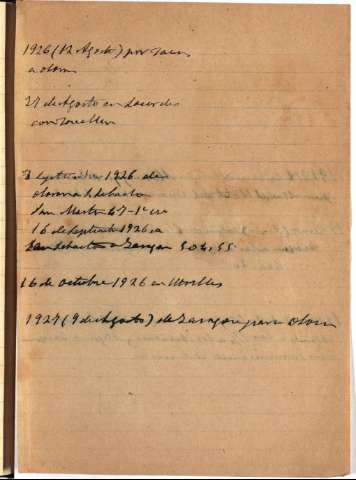 1926 (12 Agosto) por Jaca
a oloron
27 de Agosto en Lourdes
con
3 Septiembre 1926 de
oloron a S. Sebastian
San Martin 47-1º
16 de Septiembre 1926 a
San Sebastian a Zaragoza 504,55
16 de octubre 1926 en
1927 (9 de Agosto) de Zaragoza para Oloron